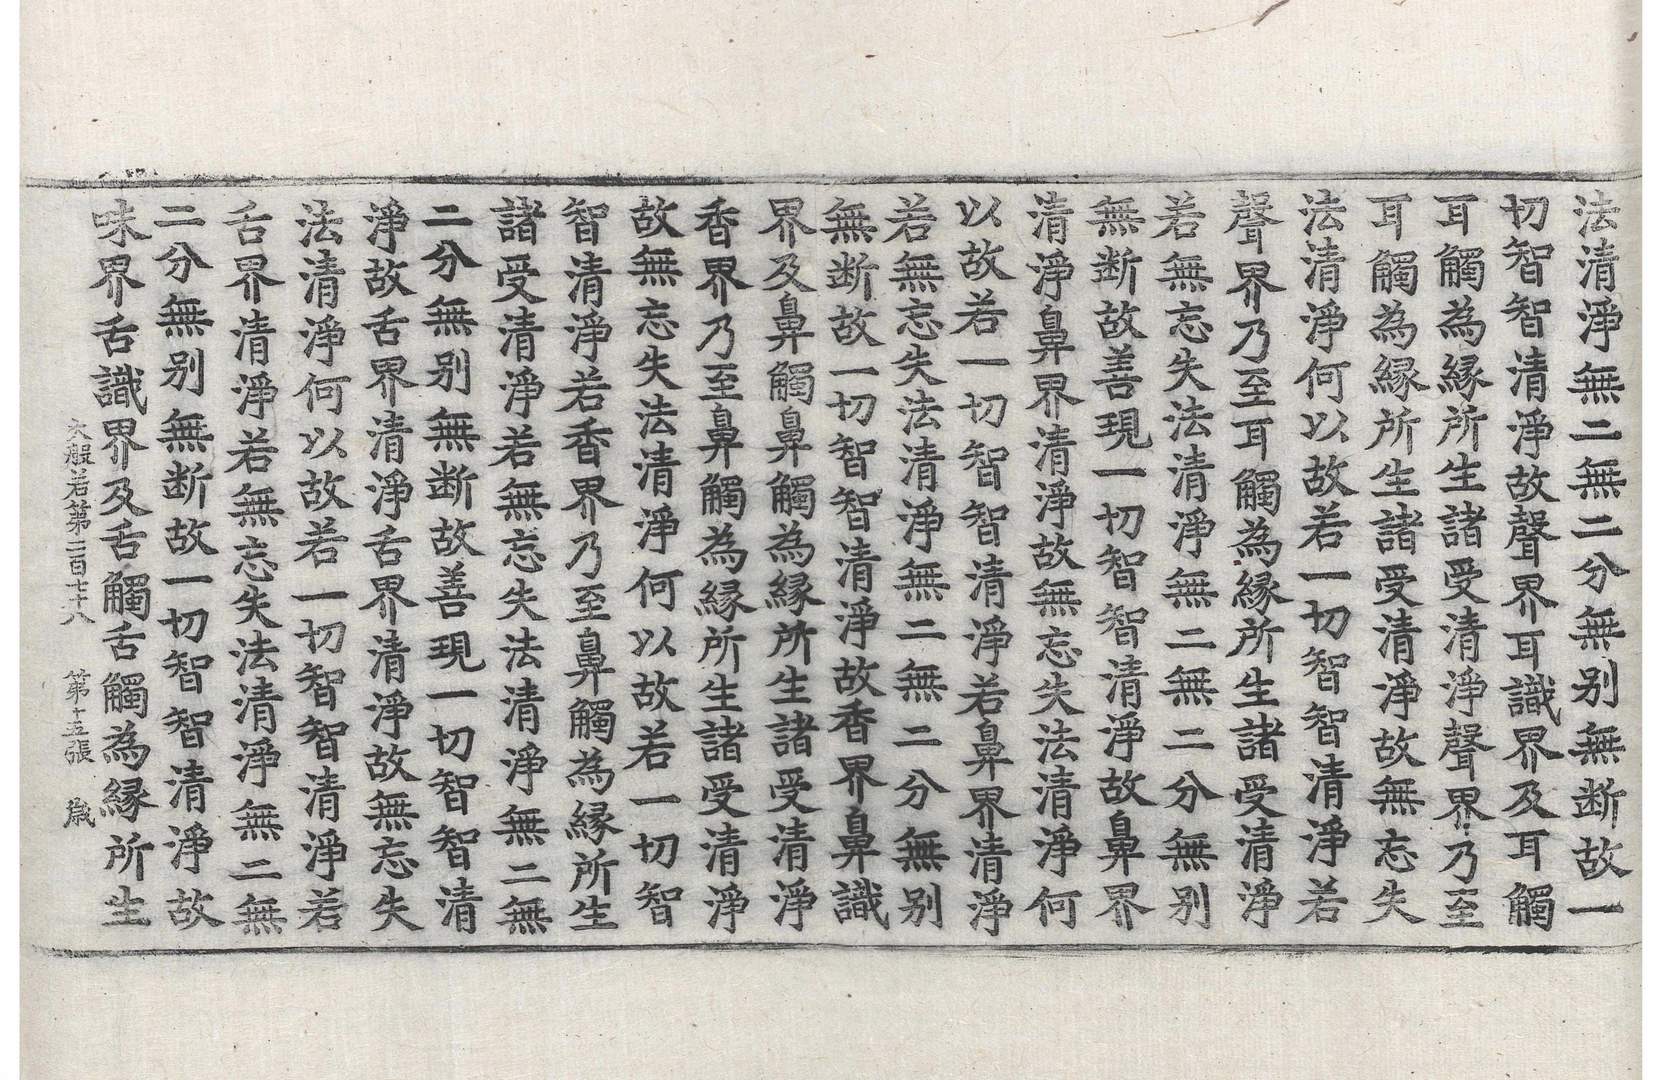 法清淨無二無二分無别無断故一
切智智清淨故聲界耳識界及耳觸
耳觸為縁所生諸受清淨聲界乃至
耳觸為縁所生諸受清淨故無忘失
法清淨何以故若一切智智清淨若
聲界乃至耳觸為縁所生諸受清淨
若無忘失法清淨無二無二分無别
無断故善現一切智智清淨故鼻界
清淨鼻界清淨故無忘失法清淨何
以故若一切智智清淨若鼻界清淨
若無忘失法清淨無二無二分無别
無断故一切智智清淨故香界鼻識
界及鼻觸鼻觸為縁所生諸受清淨
香界乃至鼻觸為縁所生諸受清淨
故無忘失法清淨何以故若一切智
智清淨若香界乃至鼻觸為縁所生
諸受清淨若無忘失法清淨無二無
二分無别無断故善現一切智智清
淨故舌界清淨舌界清淨故無忘失
法清淨何以故若一切智智清淨若
舌界清淨若無忘失法清淨無二無
二分無别無断故一切智智清淨故
味界舌識界及舌觸舌觸為縁所生
大般若第二百七十八 第十五張 歳